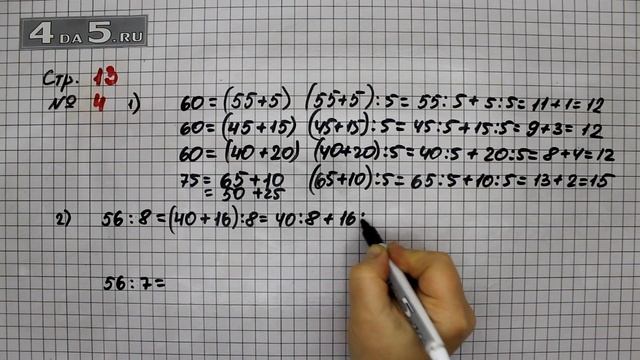 4 ДА 5.RU
Стр. 13
№ 4 1) 60 = (55+5) (55+5) : 5 = 55 : 5 + 5 : 5 = 11 + 1 = 12
60 = (45+15) (45+15) : 5 = 45 : 5 + 15 : 5 = 9 + 3 = 12
60 = (40+20) (40+20) : 5 = 40 : 5 + 20 : 5 = 8 + 4 = 12
75 = 65 + 10 (65+10) : 5 = 65 : 5 + 10 : 5 = 13 + 2 = 15
= 50 + 25
2) 56 : 8 = (40 + 16) : 8 = 40 : 8 + 16 :
56 : 7 =